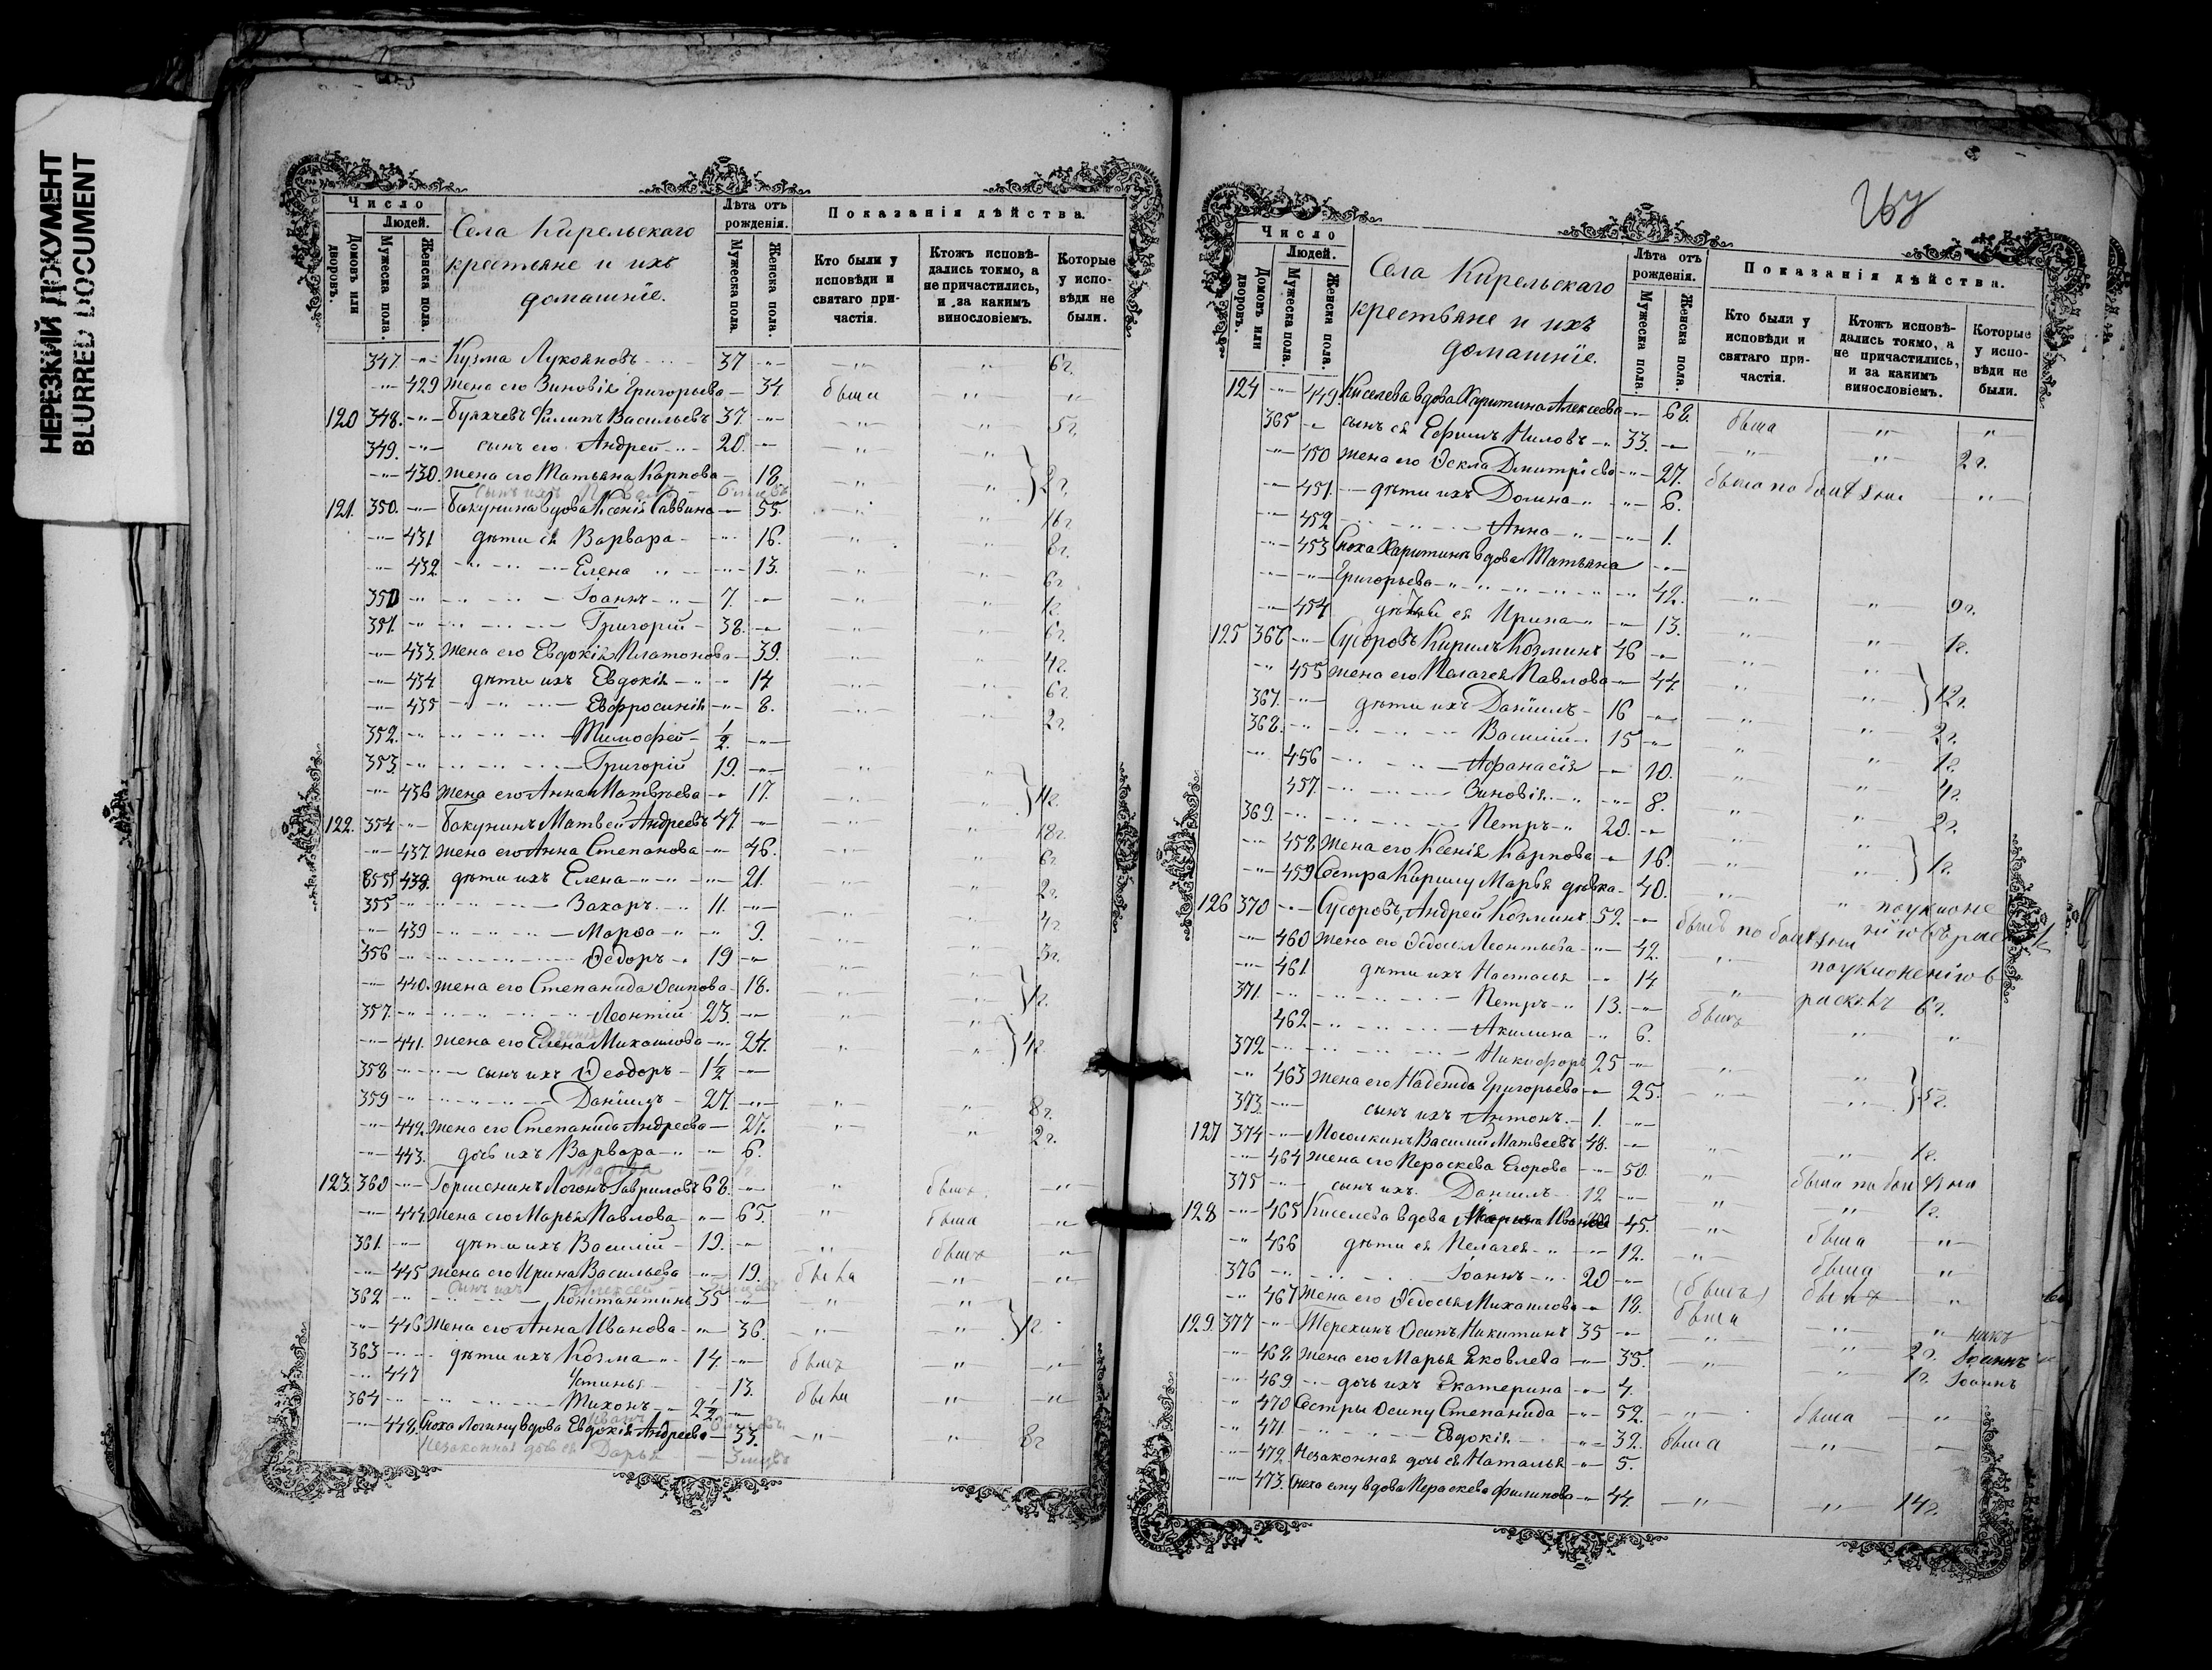 НЕРЕЗКИЙ ДОКУМЕНТ
BLURRED DOCUMENT
Число
Людей.
Домовъ или дворовъ.
Мужеска пола.
Женска пола.
Села Кирельскаго
крестьяне и ихъ
домашніе.
Лѣта отъ рожденія.
Мужеска пола.
Женска пола.
Показанія дѣйства.
Кто были у исповѣди и святаго причастія.
Ктожъ исповѣдались токмо, а не причастились, и за какимъ винословіемъ.
Которые у исповѣди не были.
347. Кузма Лукояновъ 37 6 г.
429 Жена его Зиновія Григорьева 34. была
120 348. Филипъ Васильевъ 37. 5 г.
349. сынъ его Андрей 20.
430. Жена его Татьяна Карпова 18. 2 г.
сынъ ихъ
121. 350. Бакунина вдова Ксенія Саввина 55. 16 г.
431 дѣти ея Варвара 16. 8 г.
432. Елена 13. 6 г.
350 Іоаннъ 7. 1 г.
351. Григорій 38. 6 г.
433. Жена его Евдокія Платонова 39. 4 г.
434 дѣти ихъ Евдокія 14 6 г.
435 Евфросинія 8. 2 г.
352. Тимофей ½
353. Григорій 19.
436 Жена его Анна Матвѣева 17. 4 г.
122. 354 Бакунинъ Матвей Андреевъ 47. 18 г.
437. Жена его Анна Степанова 46. 6 г.
438. дѣти ихъ Елена 21. 2 г.
355 Захаръ 11. 4 г.
439 Марѳа 9. 3 г.
356 Ѳедоръ 19
440. Жена его Степанида Осипова 18. 1 г.
357. Леонтій 23.
441. Жена его Елена Михайлова 24. 4 г.
358 сынъ ихъ Ѳеодоръ 1½
359 Даніилъ 27. 8 г.
442. Жена его Степанида Андреева 27. 2 г.
443. дочь ихъ Варвара 6.
Марія
123. 360 Логинъ Гавриловъ 68. былъ
444. Жена его Марья Павлова 65. была
361. дѣти ихъ Василій 19. былъ
445 Жена его Ирина Васильева 19. была
сынъ ихъ Алексей
362 Константинъ 35
446 Жена его Анна Иванова 36. 1 г.
363 дѣти ихъ Козма 14. былъ
447 Устинья 13. была
364 Тихонъ 2½
Иванъ
448. Сноха Логину вдова Евдокія Андреева 33. 8 г
Незаконная дочь ея Дарья 3 мѣсъ
267
Число
Людей.
Домовъ или дворовъ.
Мужеска пола.
Женска пола.
Села Кирельскаго
крестьяне и ихъ
домашніе.
Лѣта отъ рожденія.
Мужеска пола.
Женска пола.
Показанія дѣйства.
Кто были у исповѣди и святаго причастія.
Ктожъ исповѣдались токмо, а не причастились, и за какимъ винословіемъ.
Которые у исповѣди не были.
124 449. Киселева вдова Харитина Алексеева 68. была
365 сынъ ея Ефимъ Ниловъ 33. 2 г.
450 Жена его Ѳекла Дмитріева 27. была по болѣзни
451. дѣти ихъ Домна 6.
452 Анна 1.
453 Сноха Харитинѣ вдова Татьяна
Григорьева 42. 9 г.
454 дѣти ея Ирина 13. 1 г.
125 366 Сусоровъ Кирилъ Козминъ 46
455 Жена его Пелагея Павлова 44. 12 г.
367. дѣти ихъ Даніилъ 16 2 г.
368. Василій 15 1 г.
456 Афанасія 10. 4 г.
457. Зиновія 8. 2 г.
369. Петръ 20.
458. Жена его Ксенія Карпова 16. 1 г.
459 Сестра Кирилу Марья дѣвка 40. по уклоненію въ расколъ
126 370 Сусоровъ Андрей Козминъ 52. былъ по болѣзни
460 Жена его Ѳедосья Леонтьева 42. по уклоненію въ расколъ
461. дѣти ихъ Настасья 14 6 г.
371. Петръ 13. былъ
462 Акилина 6.
372. Никифоръ 25
463 Жена его Надежда Григорьева 25. 5 г.
373. сынъ ихъ Антонъ 1.
127 374 Мосолкинъ Василій Матвеевъ 48. 1 г.
464 Жена его Пераскева Егорова 50. была по болѣзни
375 сынъ ихъ Даніилъ 12 1 г.
128 465 Киселева вдова Марья Иванова 45. была
466 дѣти ея Пелагея 12. была
376 Іоаннъ 20 (былъ)
467 Жена его Ѳедосья Михайлова 18. была
129. 377 Терехинъ Осипъ Никитинъ 35 2 г. Іоаннъ
468 Жена его Марья Яковлева 35. 1 г. Іоаннъ
469. дочь ихъ Екатерина 4.
470 Сестры Осипу Степанида 52. была
471. Евдокія 32. была
472 Незаконная дочь ея Наталья 5.
473. Сноха ему вдова Пераскева Филипова 44. 14 г.